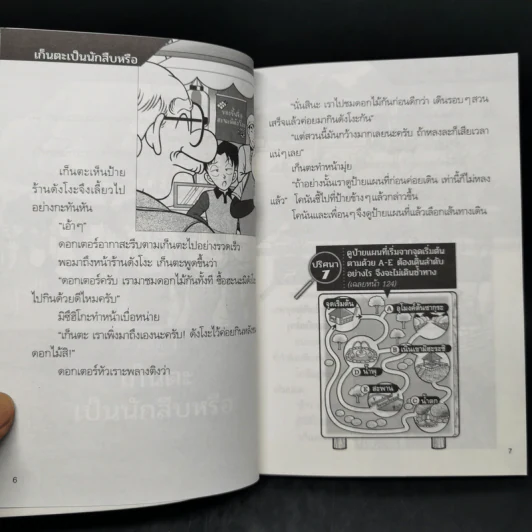 เก็นตะเป็นนักสืบหรือ
เก็นตะเห็นป้าย
ร้านดังโงะจึงเลี้ยวไป
อย่างกะทันหัน
"เอ้าๆ"
ดอกเตอร์อากาสะรีบตามเก็นตะไปอย่างรวดเร็ว
พอมาถึงหน้าร้านดังโงะ เก็นตะพูดขึ้นว่า
"ดอกเตอร์ครับ เรามาชมดอกไม้กันทั้งที ซื้อฮะนะมิดังโงะ
ไปกินด้วยดีไหมครับ"
มิซึฮิโกะทำหน้าเบื่อหน่าย
"เก็นตะ เราเพิ่งมาถึงเองนะครับ! ดังโงะไว้ค่อยกินหลังชม
ดอกไม้สิ!"
ดอกเตอร์หัวเราะพลางติงว่า
เก็นตะ
เป็นนักสืบหรือ
6
"นั่นสินะ เราไปชมดอกไม้กันก่อนดีกว่า เดินรอบๆ สวน
เสร็จแล้วค่อยมากินดังโงะกัน"
"แต่สวนนี้มันกว้างมากเลยนะครับ ถ้าหลงละก็เสียเวลา
แน่ๆ เลย"
เก็นตะทำหน้ามุ่ย
"ถ้าอย่างนั้นเราดูป้ายแผนที่ก่อนค่อยเดิน เท่านี้ก็ไม่หลง
แล้ว" โคนันชี้ไปที่ป้ายข้างๆ แล้วกล่าวขึ้น
โคนันและเพื่อนๆ จึงดูป้ายแผนที่แล้วเลือกเส้นทางเดิน
ปริศนา
1
ดูป้ายแผนที่เริ่มจากจุดเริ่มต้น
ตามด้วย A-E ต้องเดินลำดับ
อย่างไร จึงจะไม่เดินซ้ำทาง
(เฉลยหน้า 124)
จุดเริ่มต้น
A อุโมงค์ต้นซากุระ
B เนินเขามิฮะระชิ
D น้ำพุ
E สะพาน
C น้ำตก
7